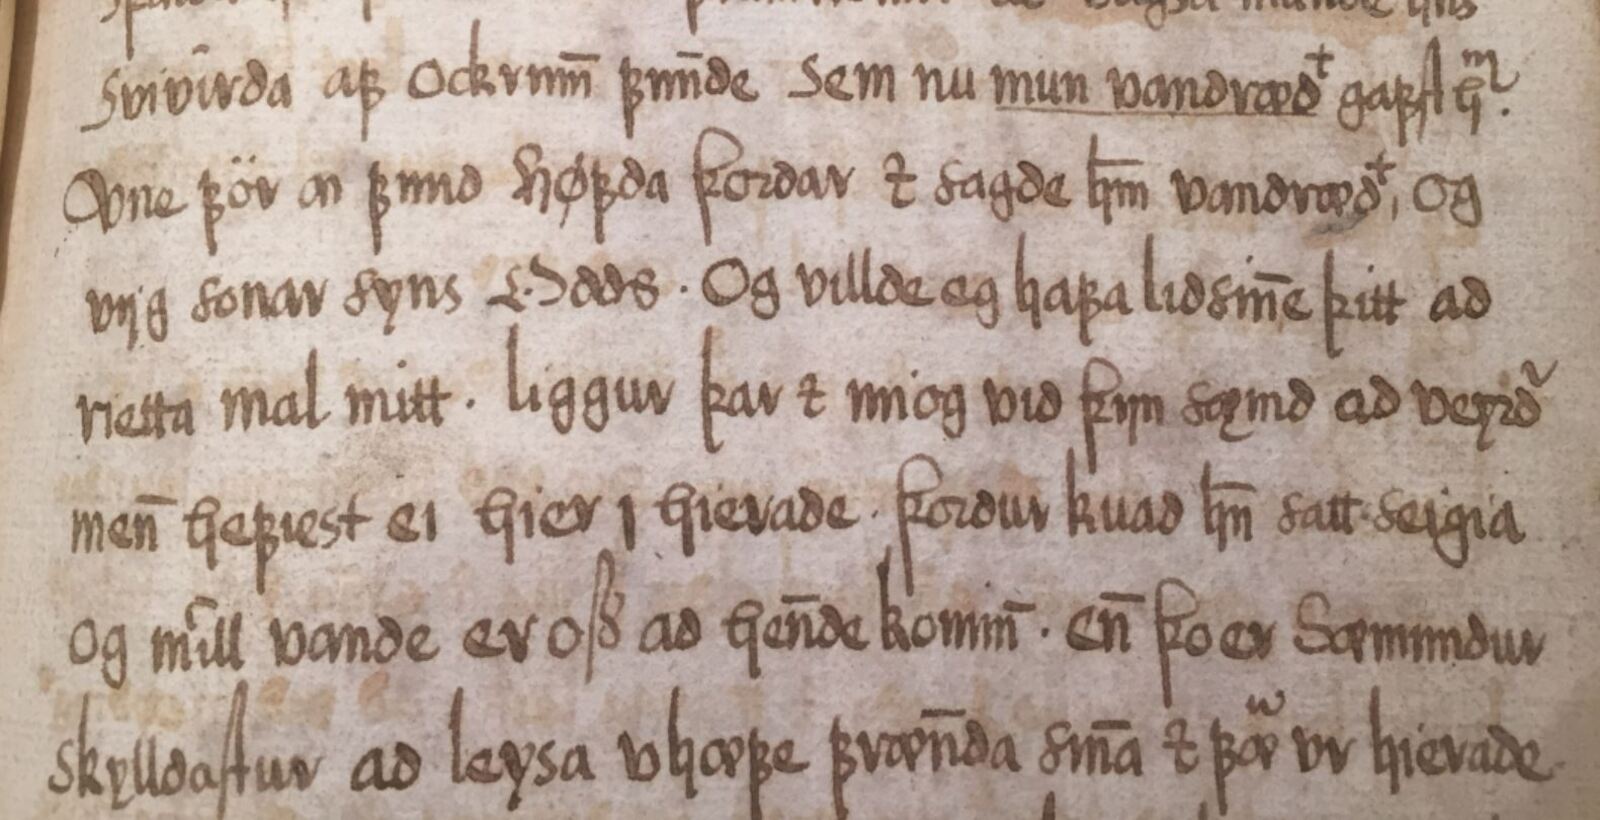 Svivirda af ockrum̄ fun̄de Sem nu mun vandræd gafst hm.
Ovne för a fund höfda þordar ⁊ sagde hm̄ vandræd, og
vijg sonar syns Odds. Og villde eg hafa lidsin̄e þitt ad
rietta mal mitt. liggur þar ⁊ miog vid þijn sæmd ad veyrd
men̄ hefiest ei hier j hierade. þordur kuad hn̄ satt seigia
og mill vande er oss ad hen̄de komin̄. en̄ þo er Sæmundur
skylldastur ad leysa vhæfe fræn̄da sin̄a ⁊ fær vr hierade